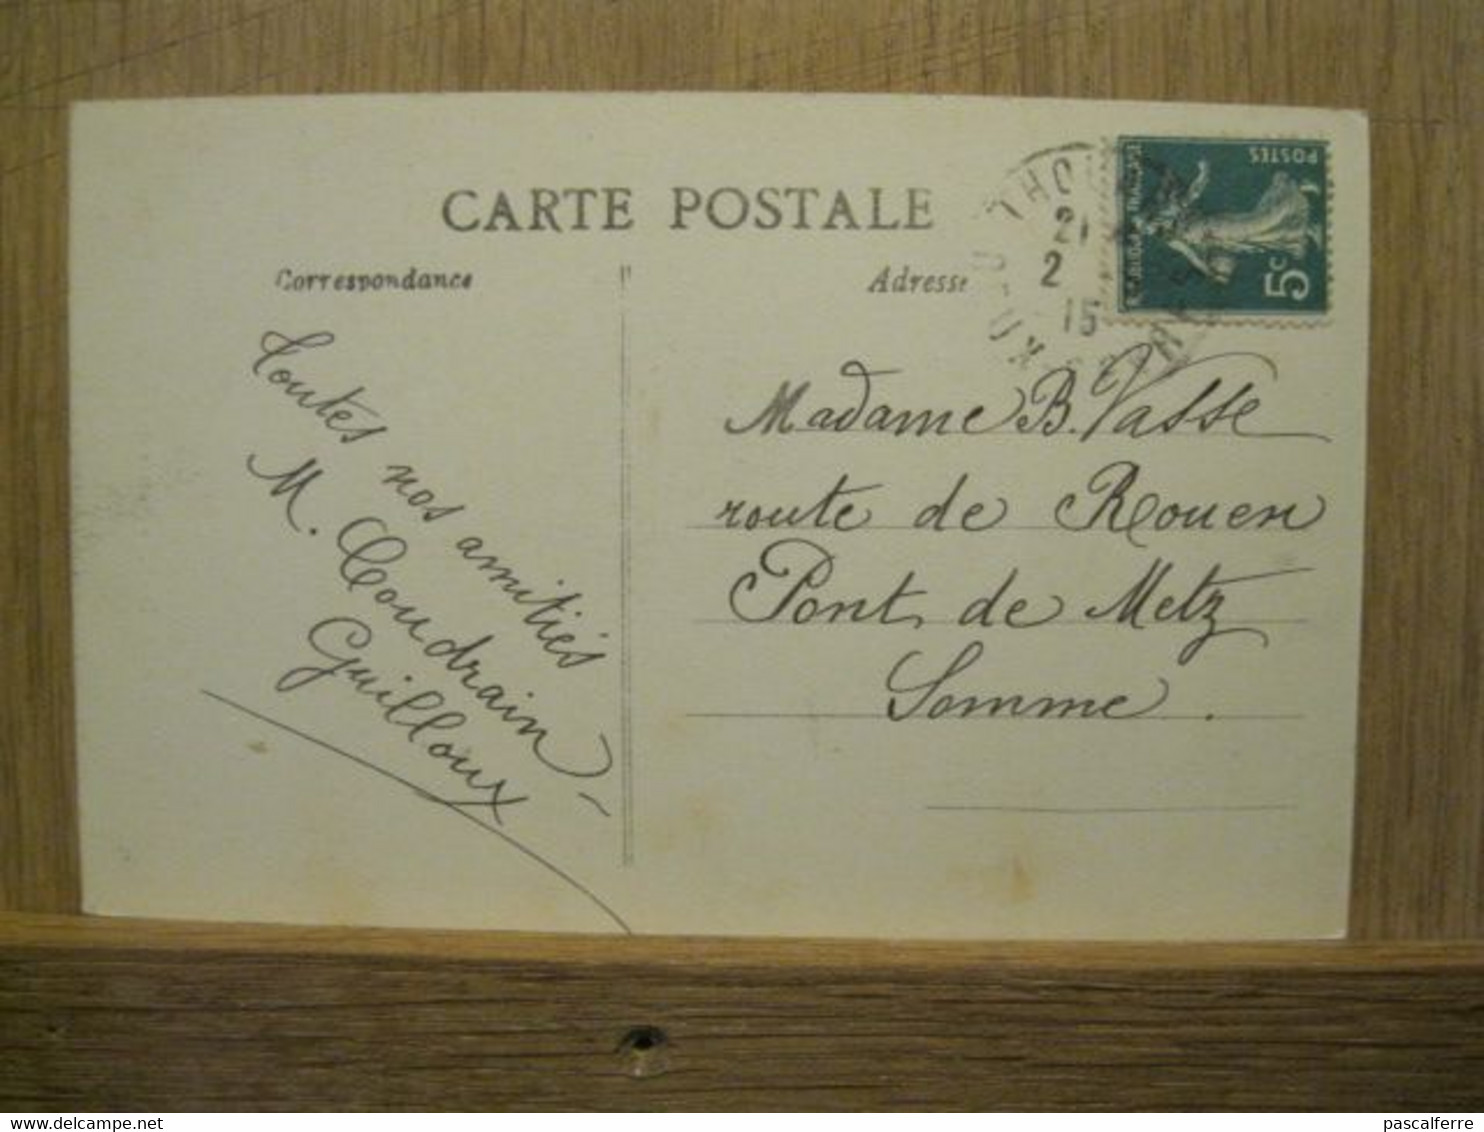 CARTE POSTALE
Correspondance
Adresse
Toutes nos amitiés
M. Coudrain-
Guilloux
Madame B. Vasse
route de Rouen
Pont de Metz
Somme.
21
2
15
POSTES
5c
pascalferre